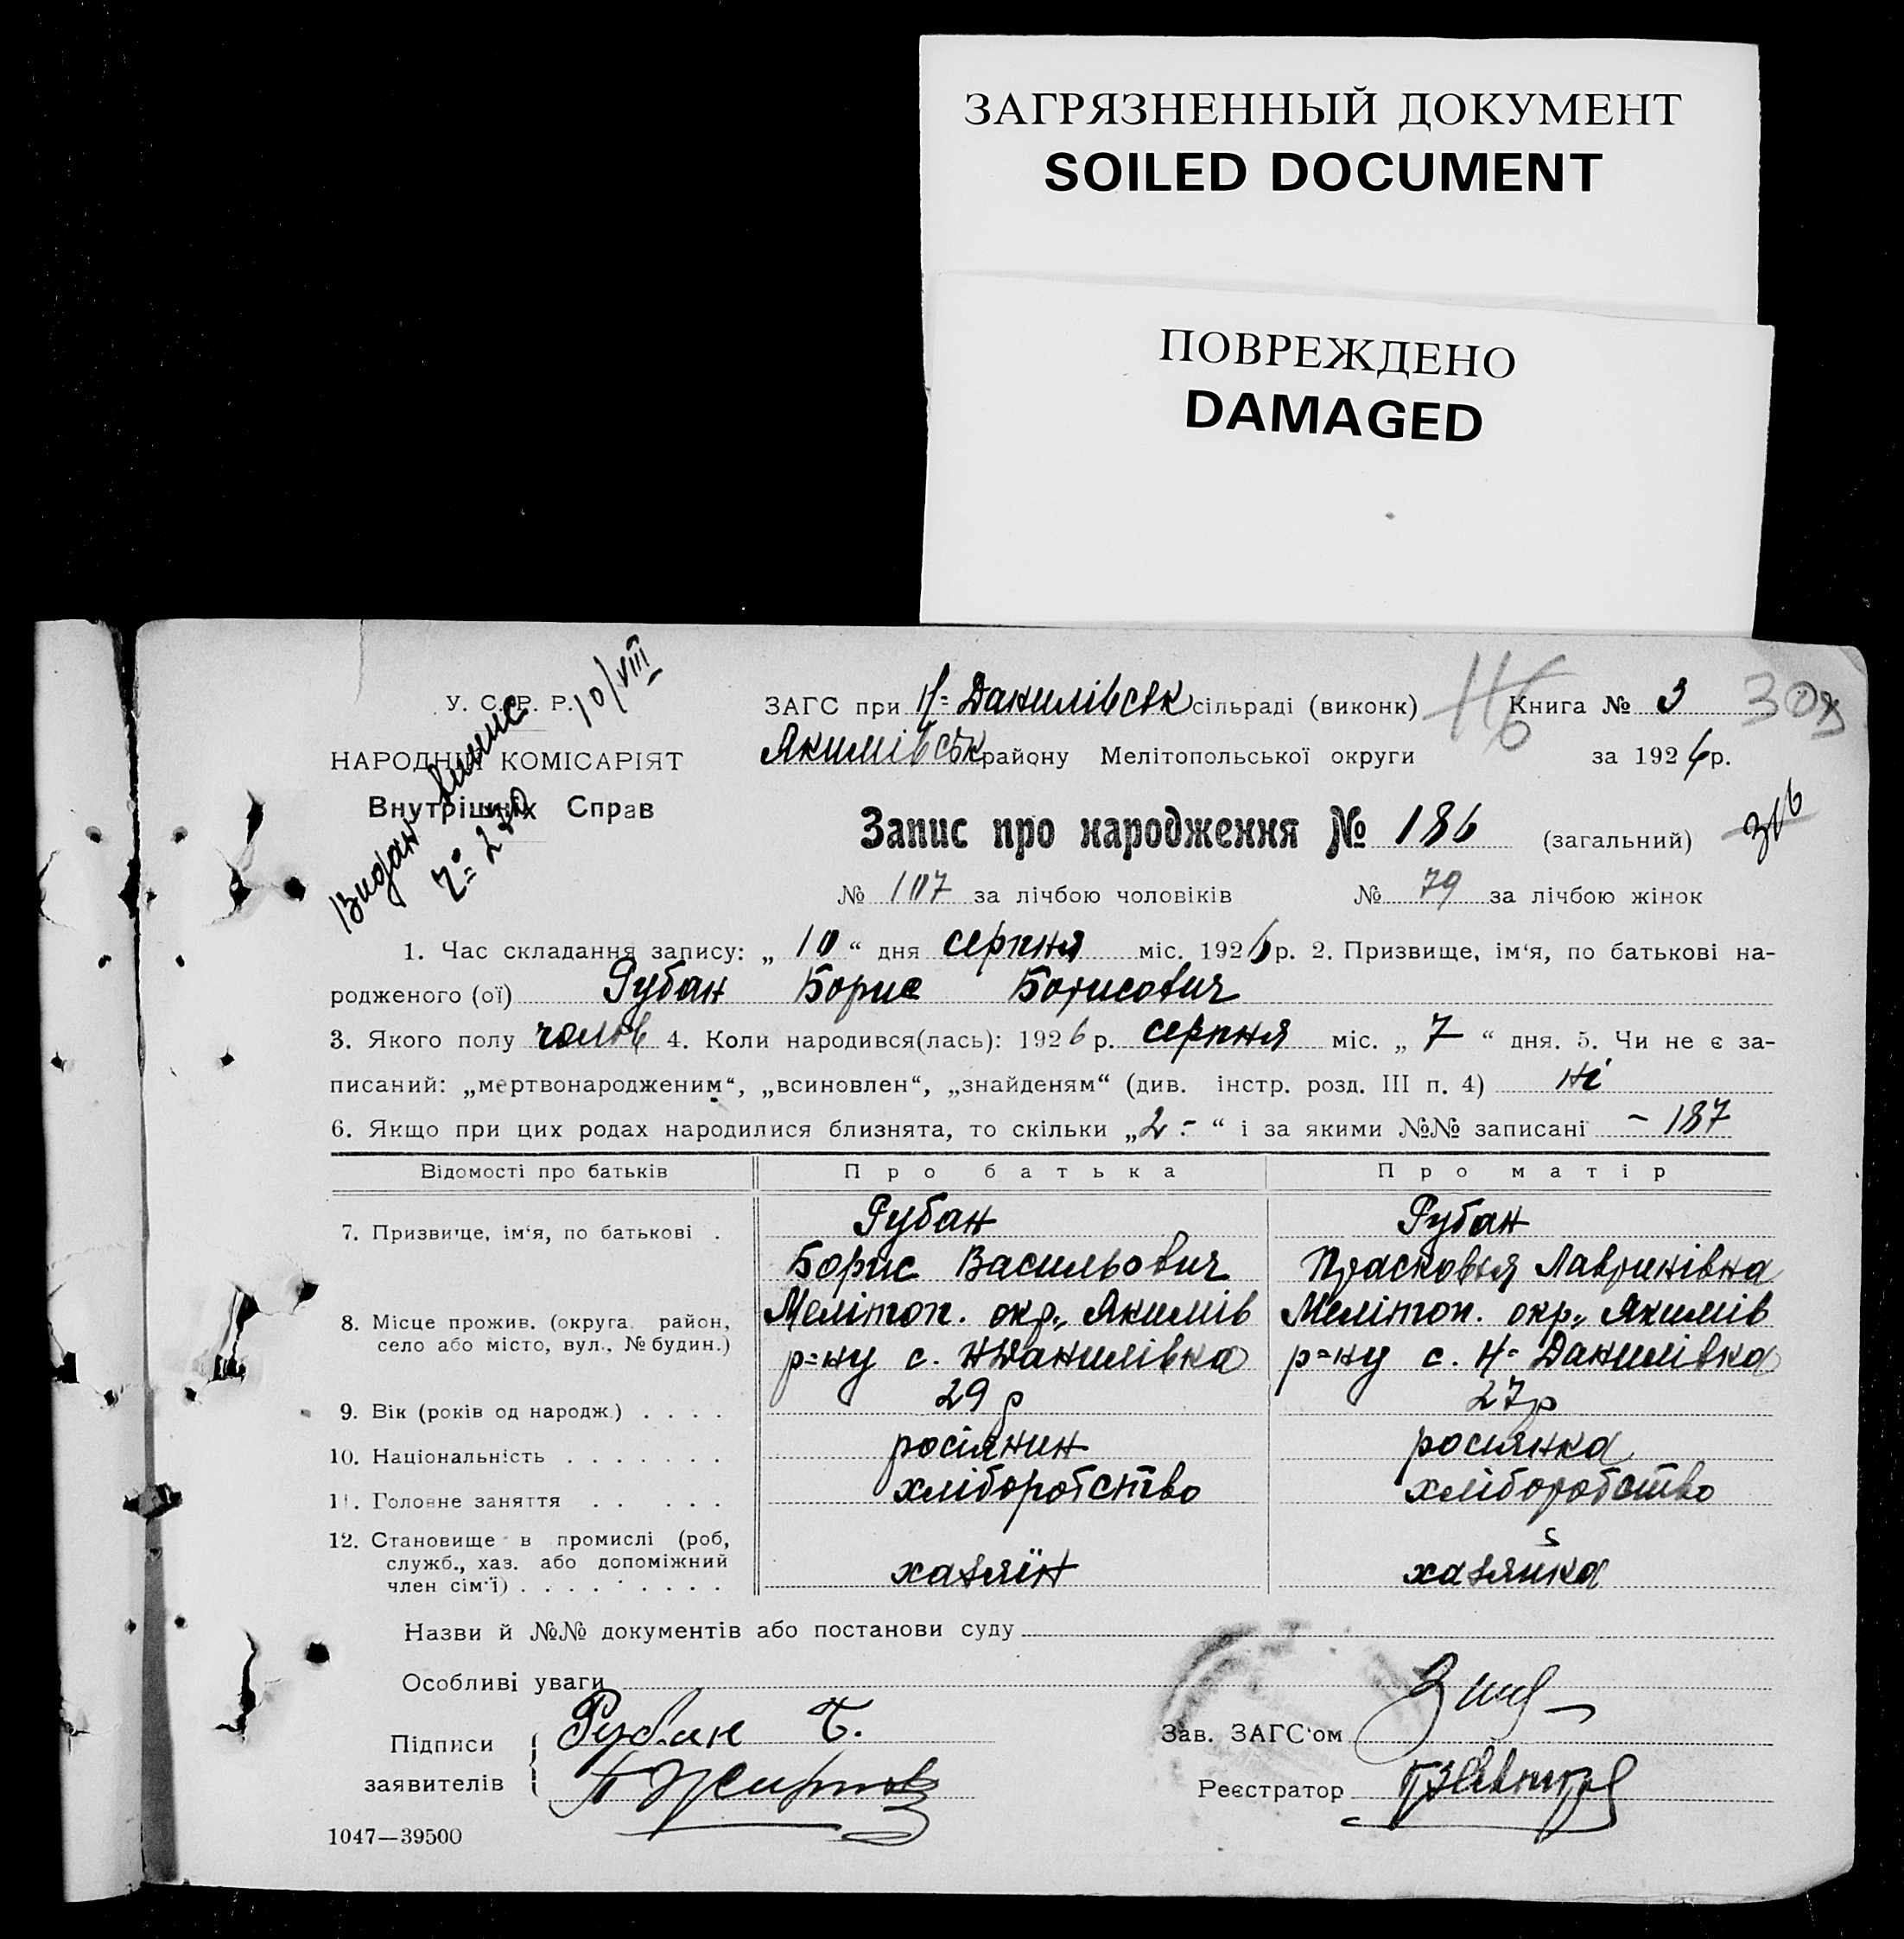 ЗАГРЯЗНЕННЫЙ ДОКУМЕНТ
SOILED DOCUMENT
ПОВРЕЖДЕНО
DAMAGED
У. С. Р. Р.
НАРОДНІЙ КОМІСАРІЯТ
Внутрішніх Справ
10/VIII
Видан
ЗАГС при Н-Данилівськ сільраді (виконк)
116
Книга № 3
Якимівськ району Мелітопольської округи
за 1926 р.
Запис про народження № 186 (загальний)
316
№ 107 за лічбою чоловіків № 79 за лічбою жінок
1. Час складання запису: „ 10 “ дня серпня міс. 1926 р. 2. Призвище, ім‘я, по батькові на-
родженого (ої) Рубан Борис Борисович
3. Якого полу чолов 4. Коли народився(лась): 1926 р. серпня міс. „ 7 “ дня. 5. Чи не є за-
писаний: „мертвонародженим“, „всиновлен“, „знайденям“ (див. інстр. розд. III п. 4) ні
6. Якщо при цих родах народилися близнята, то скільки „2 - “ і за якими №№ записані – 187
Відомості про батьків Про батька Про матір
7. Призвище, ім‘я, по батькові . Рубан Рубан
Борис Васильович Прасковья Лавринівна
8. Місце прожив. (округа район, Мелітоп. окр., Якимів Мелітоп. окр., Якимів
село або місто, вул., № будин.) р=ну с. НДанилівка р=ну с. Н-Данилівка
9. Вік (років од народж.) . . . . 29 р 27 р
10. Національність . . . . . . . росіянин росіянка
11. Головне заняття . . . . . хліборобство хліборобство
12. Становище в промислі (роб,
служб., хаз. або допоміжний
член сім‘ї) . . . . . . . . . хазяїн хазяйка
Назви й №№ документів або постанови суду
Особливі уваги
Підписи
заявителів
Рубан Б.
Зав. ЗАГС‘ом
Реєстратор
1047—39500